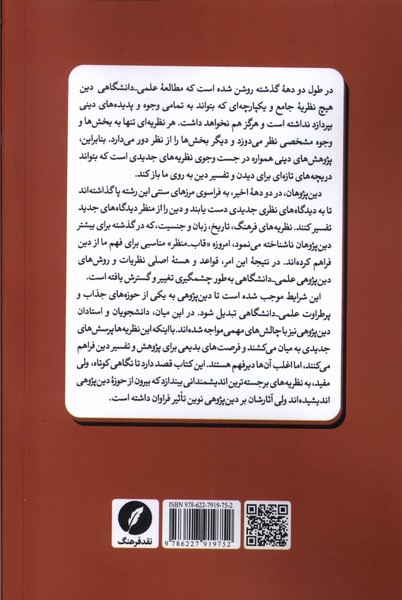 در طول دو دههٔ گذشته روشن شده است که مطالعهٔ علمی‌ـ‌دانشگاهی دین
هیچ نظریهٔ جامع و یکپارچه‌ای که بتواند به تمامی وجوه و پدیده‌های دینی
بپردازد نداشته است و هرگز هم نخواهد داشت. هر نظریه‌ای تنها به بخش‌ها و
وجوه مشخصی نظر می‌دوزد و دیگر بخش‌ها را از نظر دور می‌دارد. بنابراین،
پژوهش‌های دینی همواره در جست وجوی نظریه‌های جدیدی است که بتواند
دریچه‌های تازه‌ای برای دیدن و تفسیر دین به روی ما باز کند.
دین‌پژوهان، در دو دههٔ اخیر، به فراسوی مرزهای سنتی این رشته پا گذاشته‌اند
تا به دیدگاه‌های نظری جدیدی دست یابند و دین را از منظر دیدگاه‌های جدید
تفسیر کنند. نظریه‌های فرهنگ، تاریخ، زبان و جنسیت، که در گذشته برای بیشتر
دین‌پژوهان ناشناخته می‌نمود، امروزه «قاب‌ـمنظر» مناسبی برای فهم ما از دین
فراهم کرده‌اند. در نتیجهٔ این امر، قواعد و هستهٔ اصلی نظریات و روش‌های
دین‌پژوهی علمی‌ـ‌دانشگاهی به‌طور چشمگیری تغییر و گسترش یافته است.
این شرایط موجب شده است تا دین‌پژوهی به یکی از حوزه‌های جذاب و
پرطراوت علمی‌ـ‌دانشگاهی تبدیل شود. در این میان، دانشجویان و استادان
دین‌پژوهی نیز با چالش‌های مهمی مواجه شده‌اند. با اینکه این نظریه‌ها پرسش‌های
جدیدی به میان می‌کشند و فرصت‌های بدیعی برای پژوهش و تفسیر دین فراهم
می‌کنند، اما اغلب آن‌ها دیرفهم هستند. این کتاب قصد دارد تا نگاهی کوتاه، ولی
مفید، به نظریه‌های برجسته‌ترین اندیشمندانی بیندازد که بیرون از حوزهٔ دین‌پژوهی
اندیشیده‌اند ولی آثارشان بر دین‌پژوهی نوین تأثیر فراوان داشته است.
ISBN 978-622-7919-75-2
9 786227 919752
نقدفرهنگ